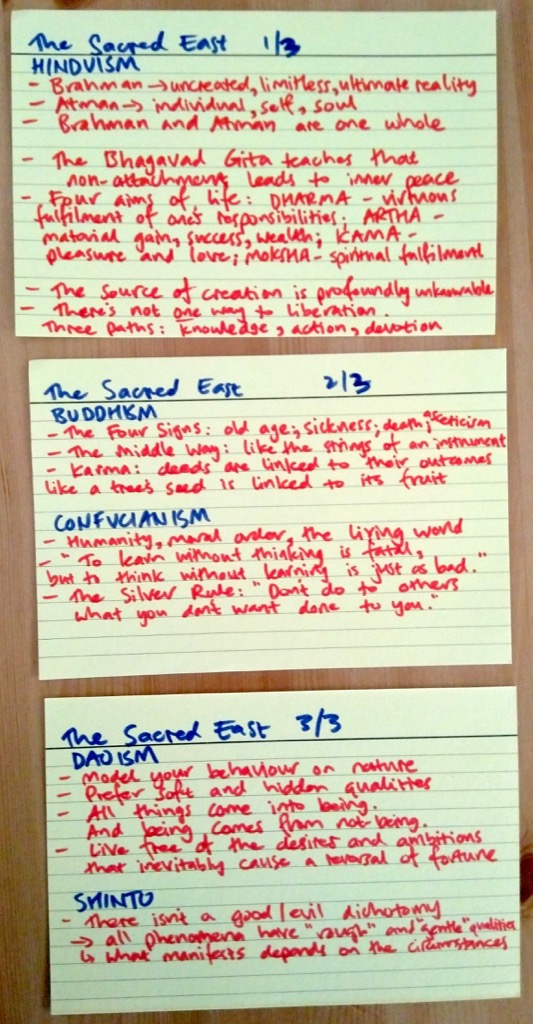 The Sacred East 1/3
HINDUISM
- Brahman → uncreated, limitless, ultimate reality
- Atman → individual, self, soul
- Brahman and Atman are one whole
- The Bhagavad Gita teaches that
non-attachment leads to inner peace
- Four aims of life: DHARMA - virtuous
fulfilment of one's responsibilities; ARTHA -
material gain, success, wealth; KAMA -
pleasure and love; MOKSHA - spiritual fulfilment
- The source of creation is profoundly unknowable
- There's not one way to liberation.
Three paths: knowledge, action, devotion
The Sacred East 2/3
BUDDHISM
- The Four Signs: old age; sickness; death; asceticism
- The Middle Way: like the strings of an instrument
- Karma: deeds are linked to their outcomes
like a tree's seed is linked to its fruit
CONFUCIANISM
- Humanity, moral order, the living world
- "To learn without thinking is fatal,
but to think without learning is just as bad."
- The Silver Rule: "Don't do to others
what you don't want done to you."
The Sacred East 3/3
DAOISM
- Model your behaviour on nature
- Prefer soft and hidden qualities
- All things come into being.
And being comes from not-being.
- Live free of the desires and ambitions
that inevitably cause a reversal of fortune
SHINTO
- There isn't a good/evil dichotomy
→ all phenomena have "rough" and "gentle" qualities
↳ What manifests depends on the circumstances